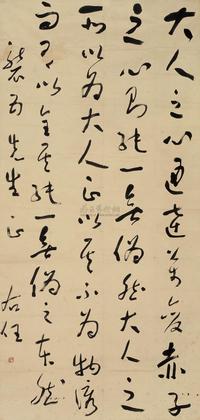 大人之心通達萬變赤子
之心則純一無偽然大人之
所以為大人正以其不為物誘
而有以全其純一無偽之本然
先生正 右任